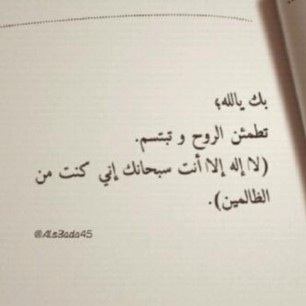 بك يالله؛
تطمئن الروح و تبتسم.
(لا إله إلا أنت سبحانك إني كنت من
الظالمين).
@ALsBada45